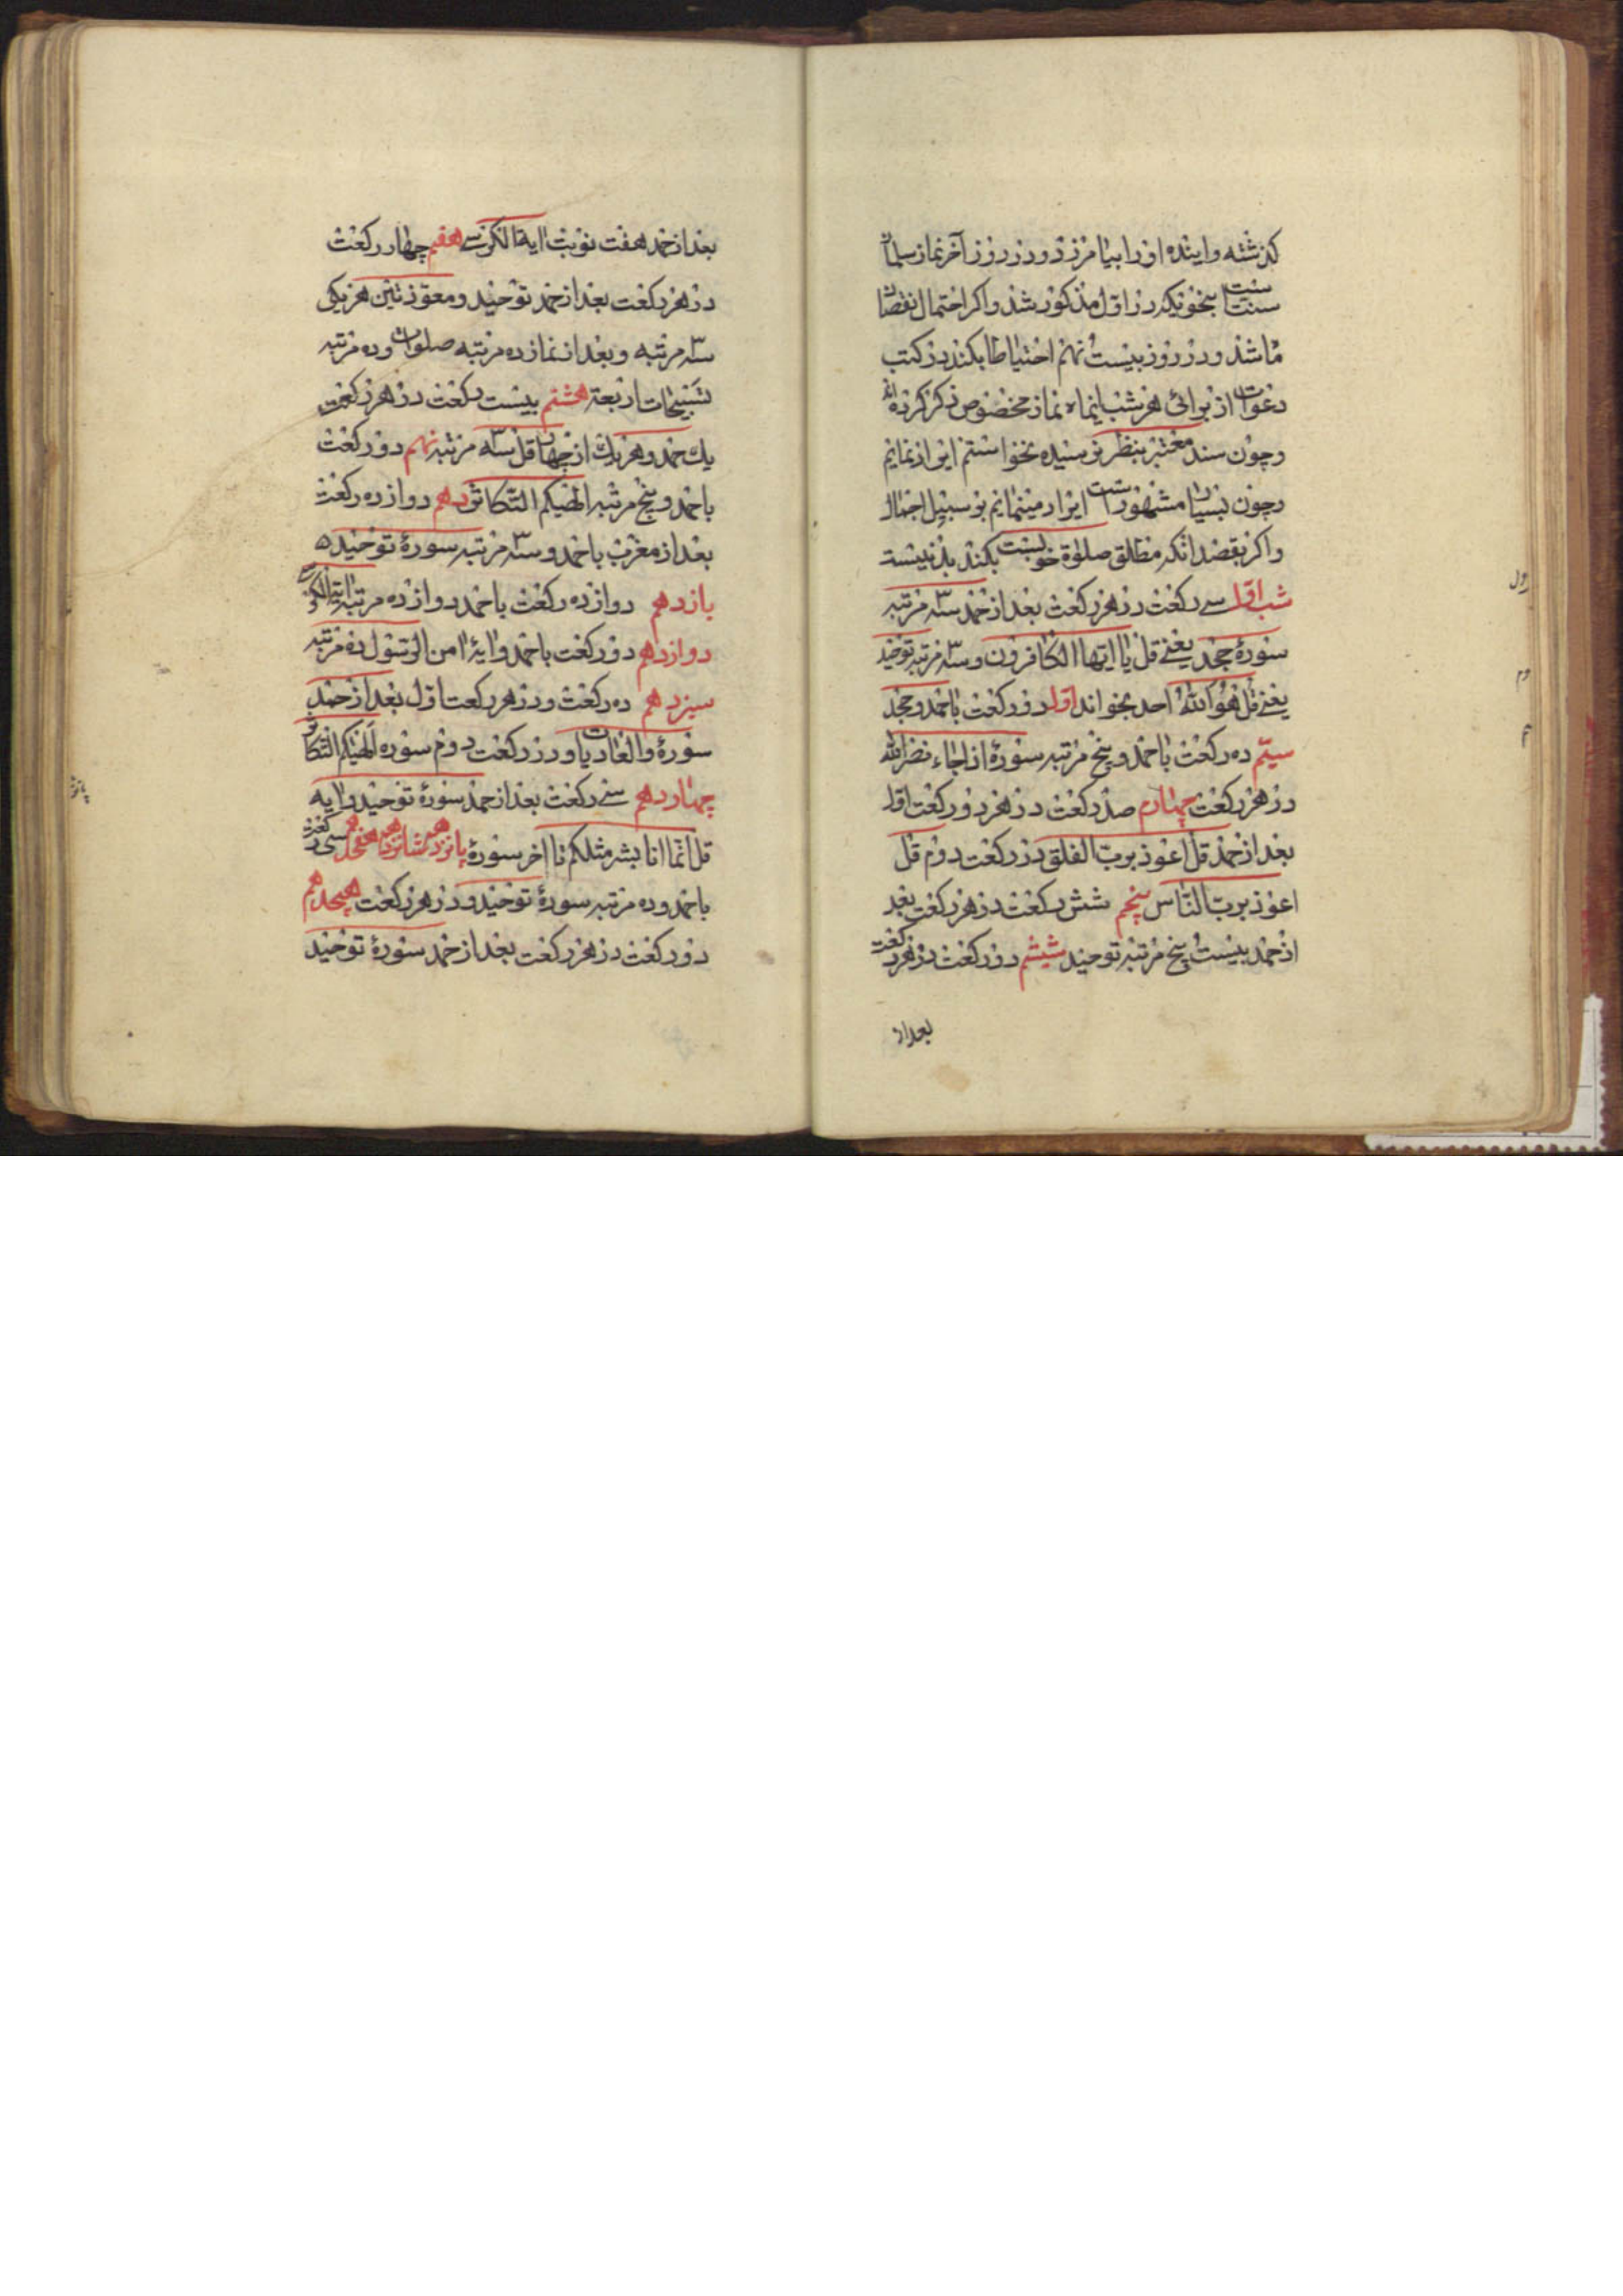 گذشته و آینده او را بیامرزد و در روز آخر نماز سلمان
سنت است بنحویکه در اول مذکور شد و اکر احتمال نقصان
باشد و در روز بیست نهم احتیاطا بکند در کتب
دعوات از برای هر شب اینماه نماز مخصوص ذکر کرده‌اند
و چون سند معتبر بنظر نرسیده نخواستم ایراد نمایم
و چون بسیار مشهور است ایراد مینمایم بر سبیل اجمال
و اکر بقصد انکه مطلق صلوة خوبست بکند بد نیست
شب اول سی رکعت در هر رکعت بعد از حمد سه مرتبه
سورهٔ جحد یعنی قل یا ایها الکافرون و سه مرتبه توحید
یعنی قل هو الله احد بخواند اول دو رکعت با حمد و جحد
سیم ده رکعت با حمد و پنج مرتبه سورهٔ اذا جاء نصر الله
در هر رکعت چهارم صد رکعت در هر دو رکعت اول
بعد از حمد قل اعوذ برب الفلق در رکعت دوم قل
اعوذ برب الناس پنجم شش رکعت در هر رکعت بعد
از حمد بیست پنج مرتبه توحید ششم دو رکعت در هر رکعت
بعد از
بعد از حمد هفت نوبت ایة الکرسی هفتم چهار رکعت
در هر رکعت بعد از حمد توحید و معوذتین هر یکی
سه مرتبه و بعد از نماز ده مرتبه صلوات و ده مرتبه
تسبیحات اربعة هشتم بیست رکعت در هر رکعت
یک حمد و هر یک از چهار قل سه مرتبه نهم دو رکعت
با حمد و پنج مرتبه الهیکم التکاثر دهم دوازده رکعت
بعد از مغرب با حمد و سه مرتبه سورهٔ توحید
یازدهم دوازده رکعت با حمد دوازده مرتبه ایة الکرسی
دوازدهم دو رکعت با حمد و ایهٔ امن الرسول ده مرتبه
سیزدهم ده رکعت و در هر رکعت اول بعد از حمد
سورهٔ والعادیات و در رکعت دوم سوره الهیکم التکاثر
چهاردهم سی رکعت بعد از حمد سورهٔ توحید و ایه
قل انما انا بشر مثلکم تا اخر سورهٔ پانزدهم شانزدهم هفدهم سی رکعت
با حمد و ده مرتبه سورهٔ توحید و در هر رکعت هیجدهم
دو رکعت در هر رکعت بعد از حمد سورهٔ توحید